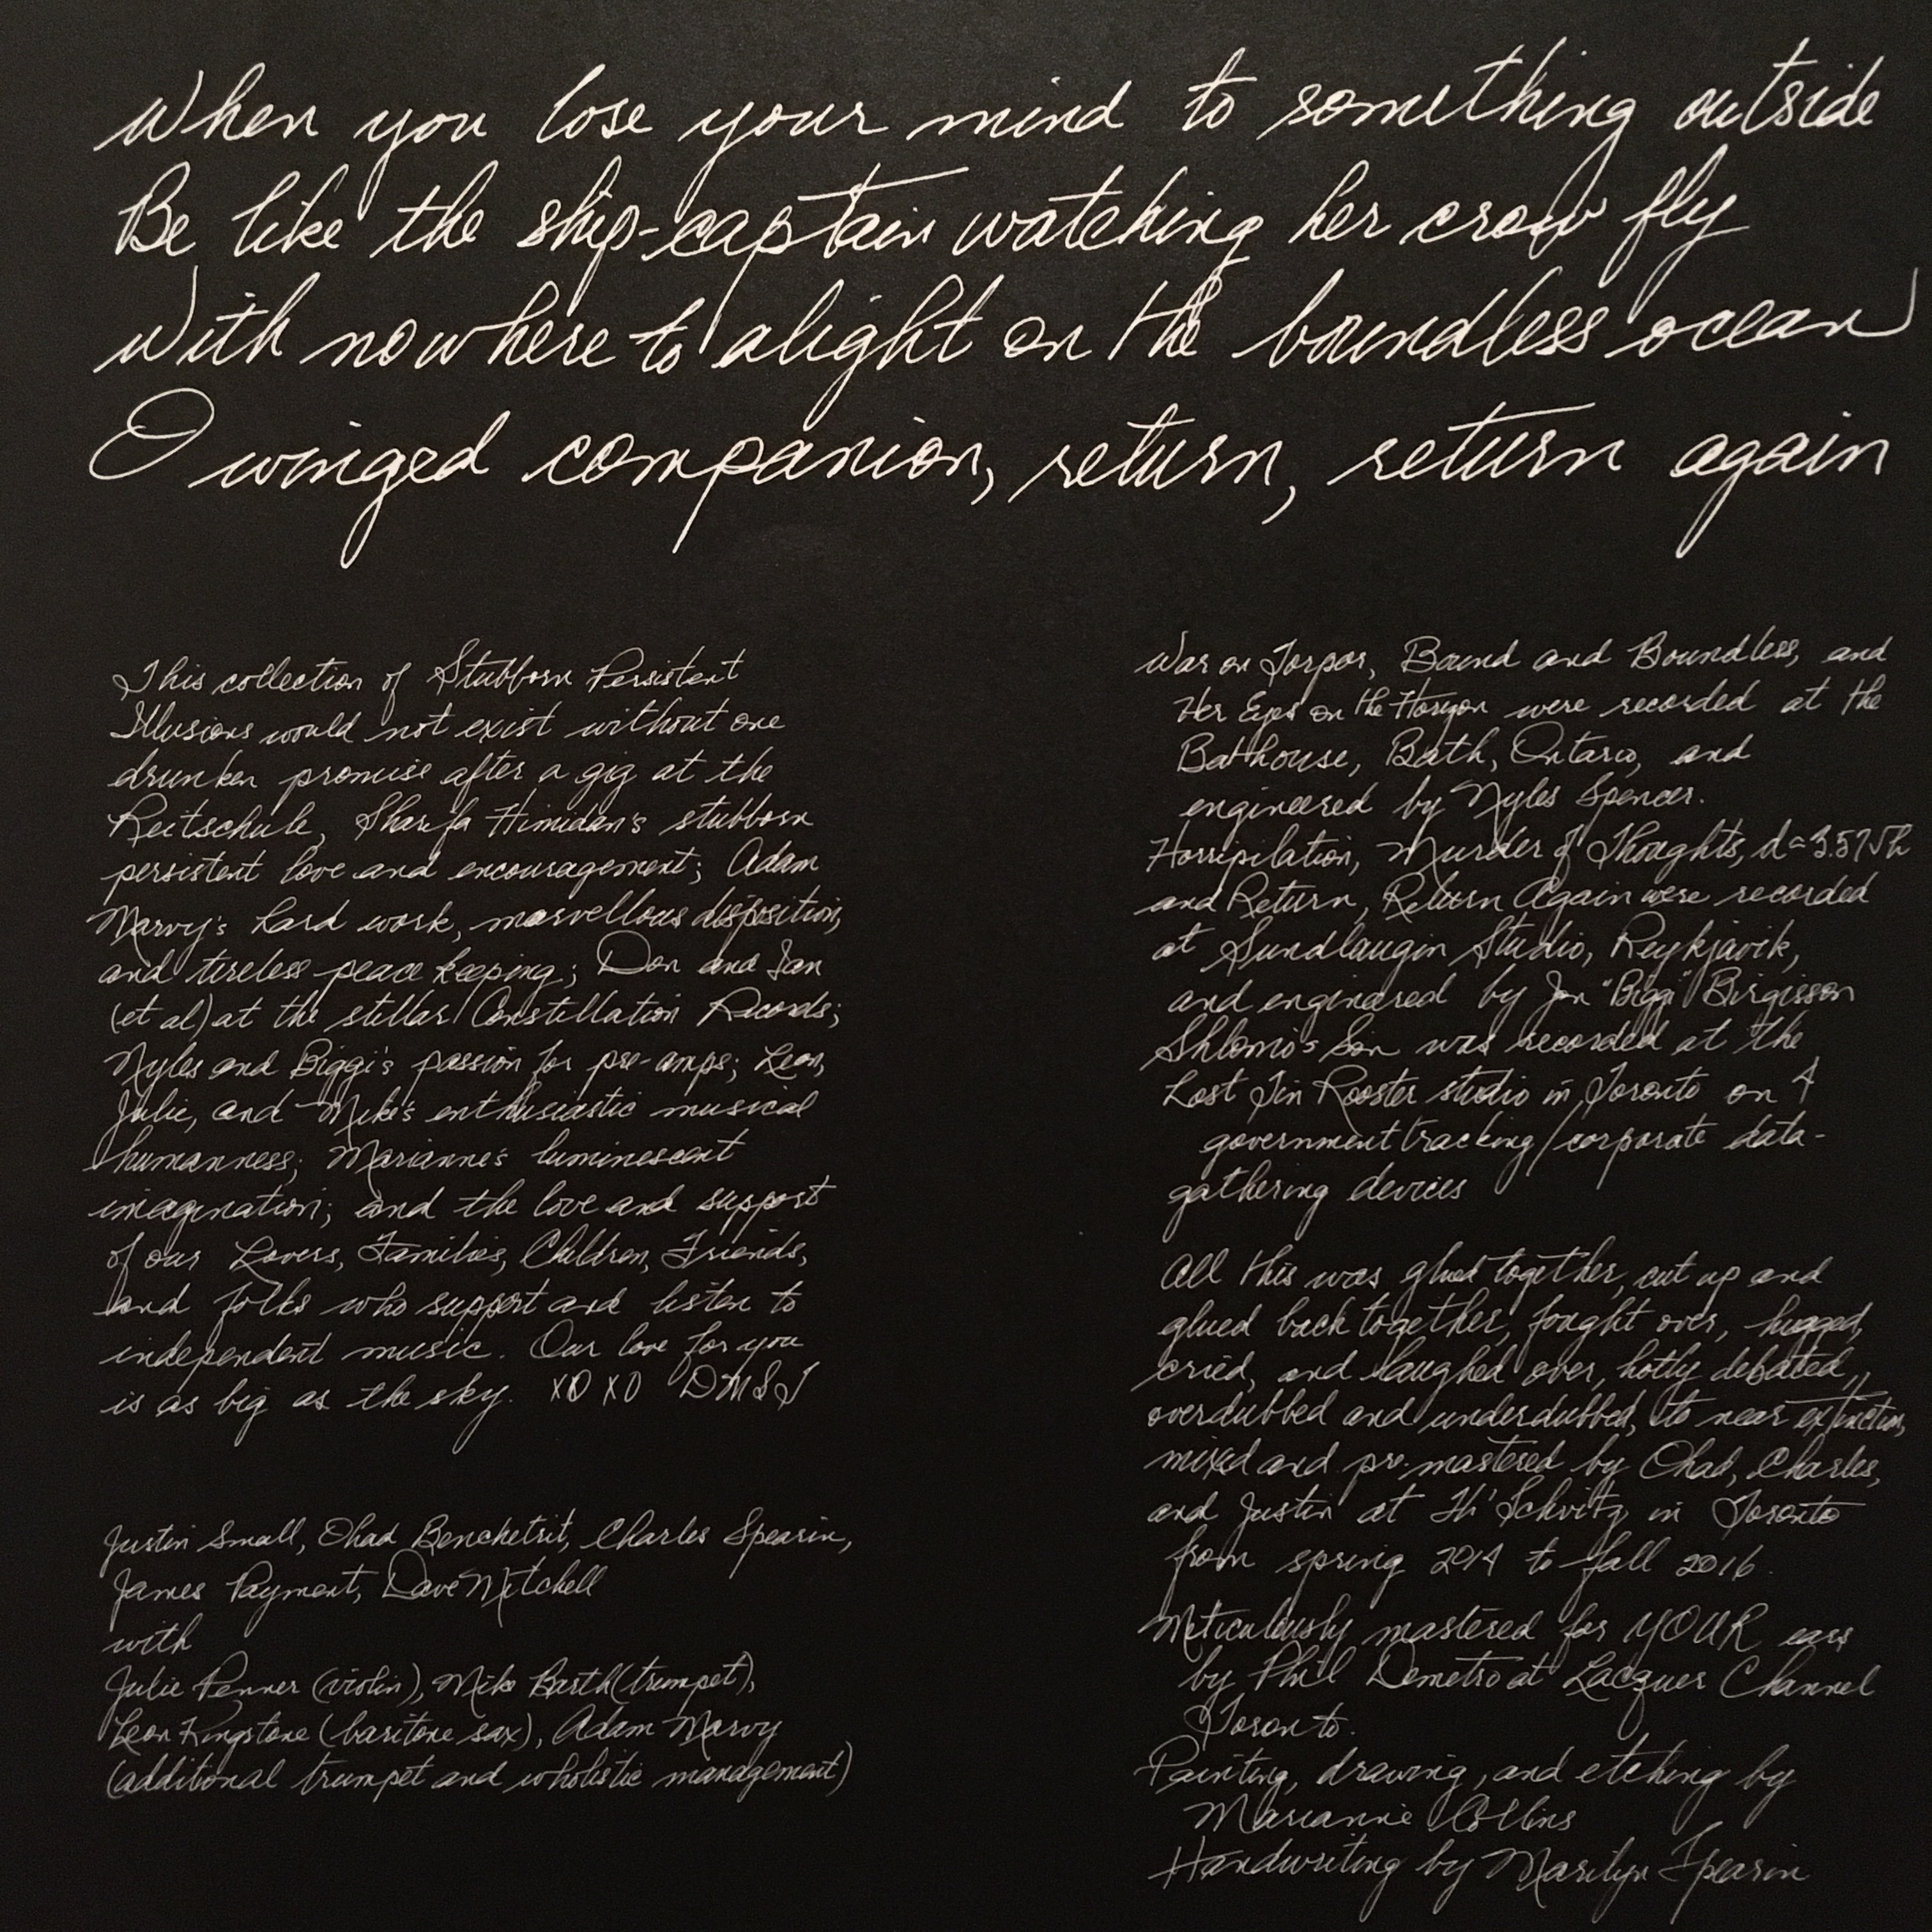 When you lose your mind to something outside
Be like the ship-captain watching her crow fly
With nowhere to alight on the boundless ocean
O winged companion, return, return again
This collection of Stubborn Persistent
Illusions would not exist without one
drunken promise after a gig at the
Reitschule, Sharifa Himidan's stubborn
persistent love and encouragement; Adam
Marvy's hard work, marvellous disposition,
and tireless peace keeping; Don and Ian
(et al) at the stellar Constellation Records;
Nyles and Biggi's passion for pre-amps; Leon,
Julie, and Mike's enthusiastic musical
humanness; Marianne's luminescent
imagination; and the love and support
of our Lovers, Families, Children, Friends,
and folks who support and listen to
independent music. Our love for you
is as big as the sky. XOXO DMST
Justin Small, Ohad Benchetrit, Charles Spearin,
James Payment, Dave Mitchell
with
Julie Penner (violin), Mike Barth (trumpet),
Leon Kingstone (baritone sax), Adam Marvy
(additional trumpet and wholistic management)
War on Torpor, Bound and Boundless, and
Her Eyes on the Horizon were recorded at the
Bathouse, Bath, Ontario, and
engineered by Nyles Spencer.
Horripilation, Murder of Thoughts, d=3.57√h
and Return, Return Again were recorded
at Sundlaugin Studio, Reykjavik,
and engineered by Jon "Biggi" Birgisson
Shlomo's Son was recorded at the
Lost Tin Rooster studio in Toronto on 4
government tracking/corporate data-
gathering devices
All this was glued together, cut up and
glued back together, fought over, hugged,
cried, and laughed over, hotly debated,
overdubbed and underdubbed, to near extinction,
mixed and pre-mastered by Ohad, Charles,
and Justin at Th' Schvitz, in Toronto
from spring 2014 to fall 2016.
Meticulously mastered for YOUR ears
by Phil Demetro at Lacquer Channel
Toronto.
Painting, drawing, and etching by
Marianne Collins
Handwriting by Marilyn Spearin